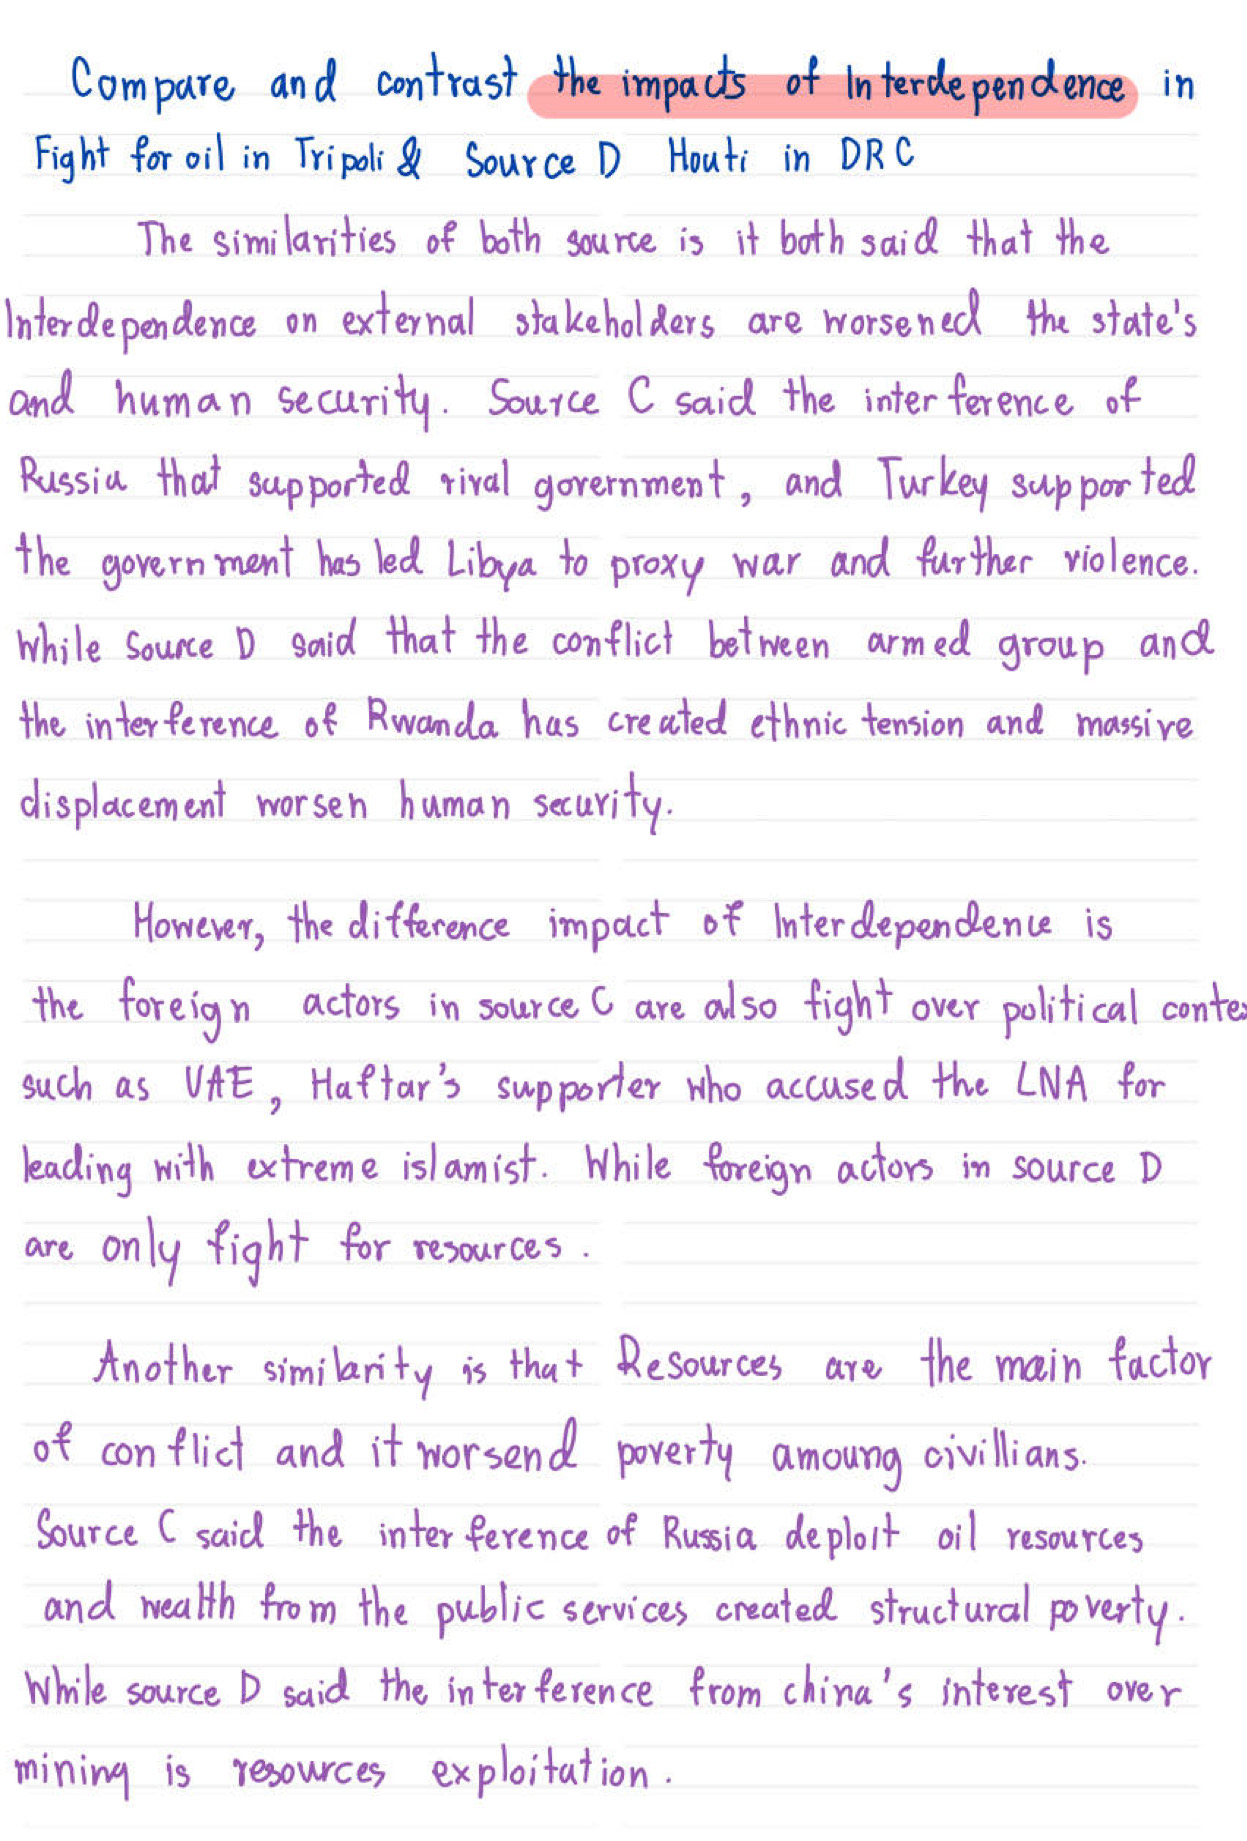 Compare and contrast the impacts of Interdependence in
Fight for oil in Tripoli & Source D Houti in DRC
The similarities of both source is it both said that the
Interdependence on external stakeholders are worsened the state's
and human security. Source C said the interference of
Russia that supported rival government, and Turkey supported
the government has led Libya to proxy war and further violence.
While Source D said that the conflict between armed group and
the interference of Rwanda has created ethnic tension and massive
displacement worsen human security.
However, the difference impact of Interdependence is
the foreign actors in source C are also fight over political
such as UAE, Haftar's supporter who accused the LNA for
leading with extreme islamist. While foreign actors in source D
are only fight for resources.
Another similarity is that Resources are the main factor
of conflict and it worsend poverty amoung civillians.
Source C said the interference of Russia deploit oil resources
and wealth from the public services created structural poverty.
While source D said the interference from china's interest over
mining is resources exploitation.